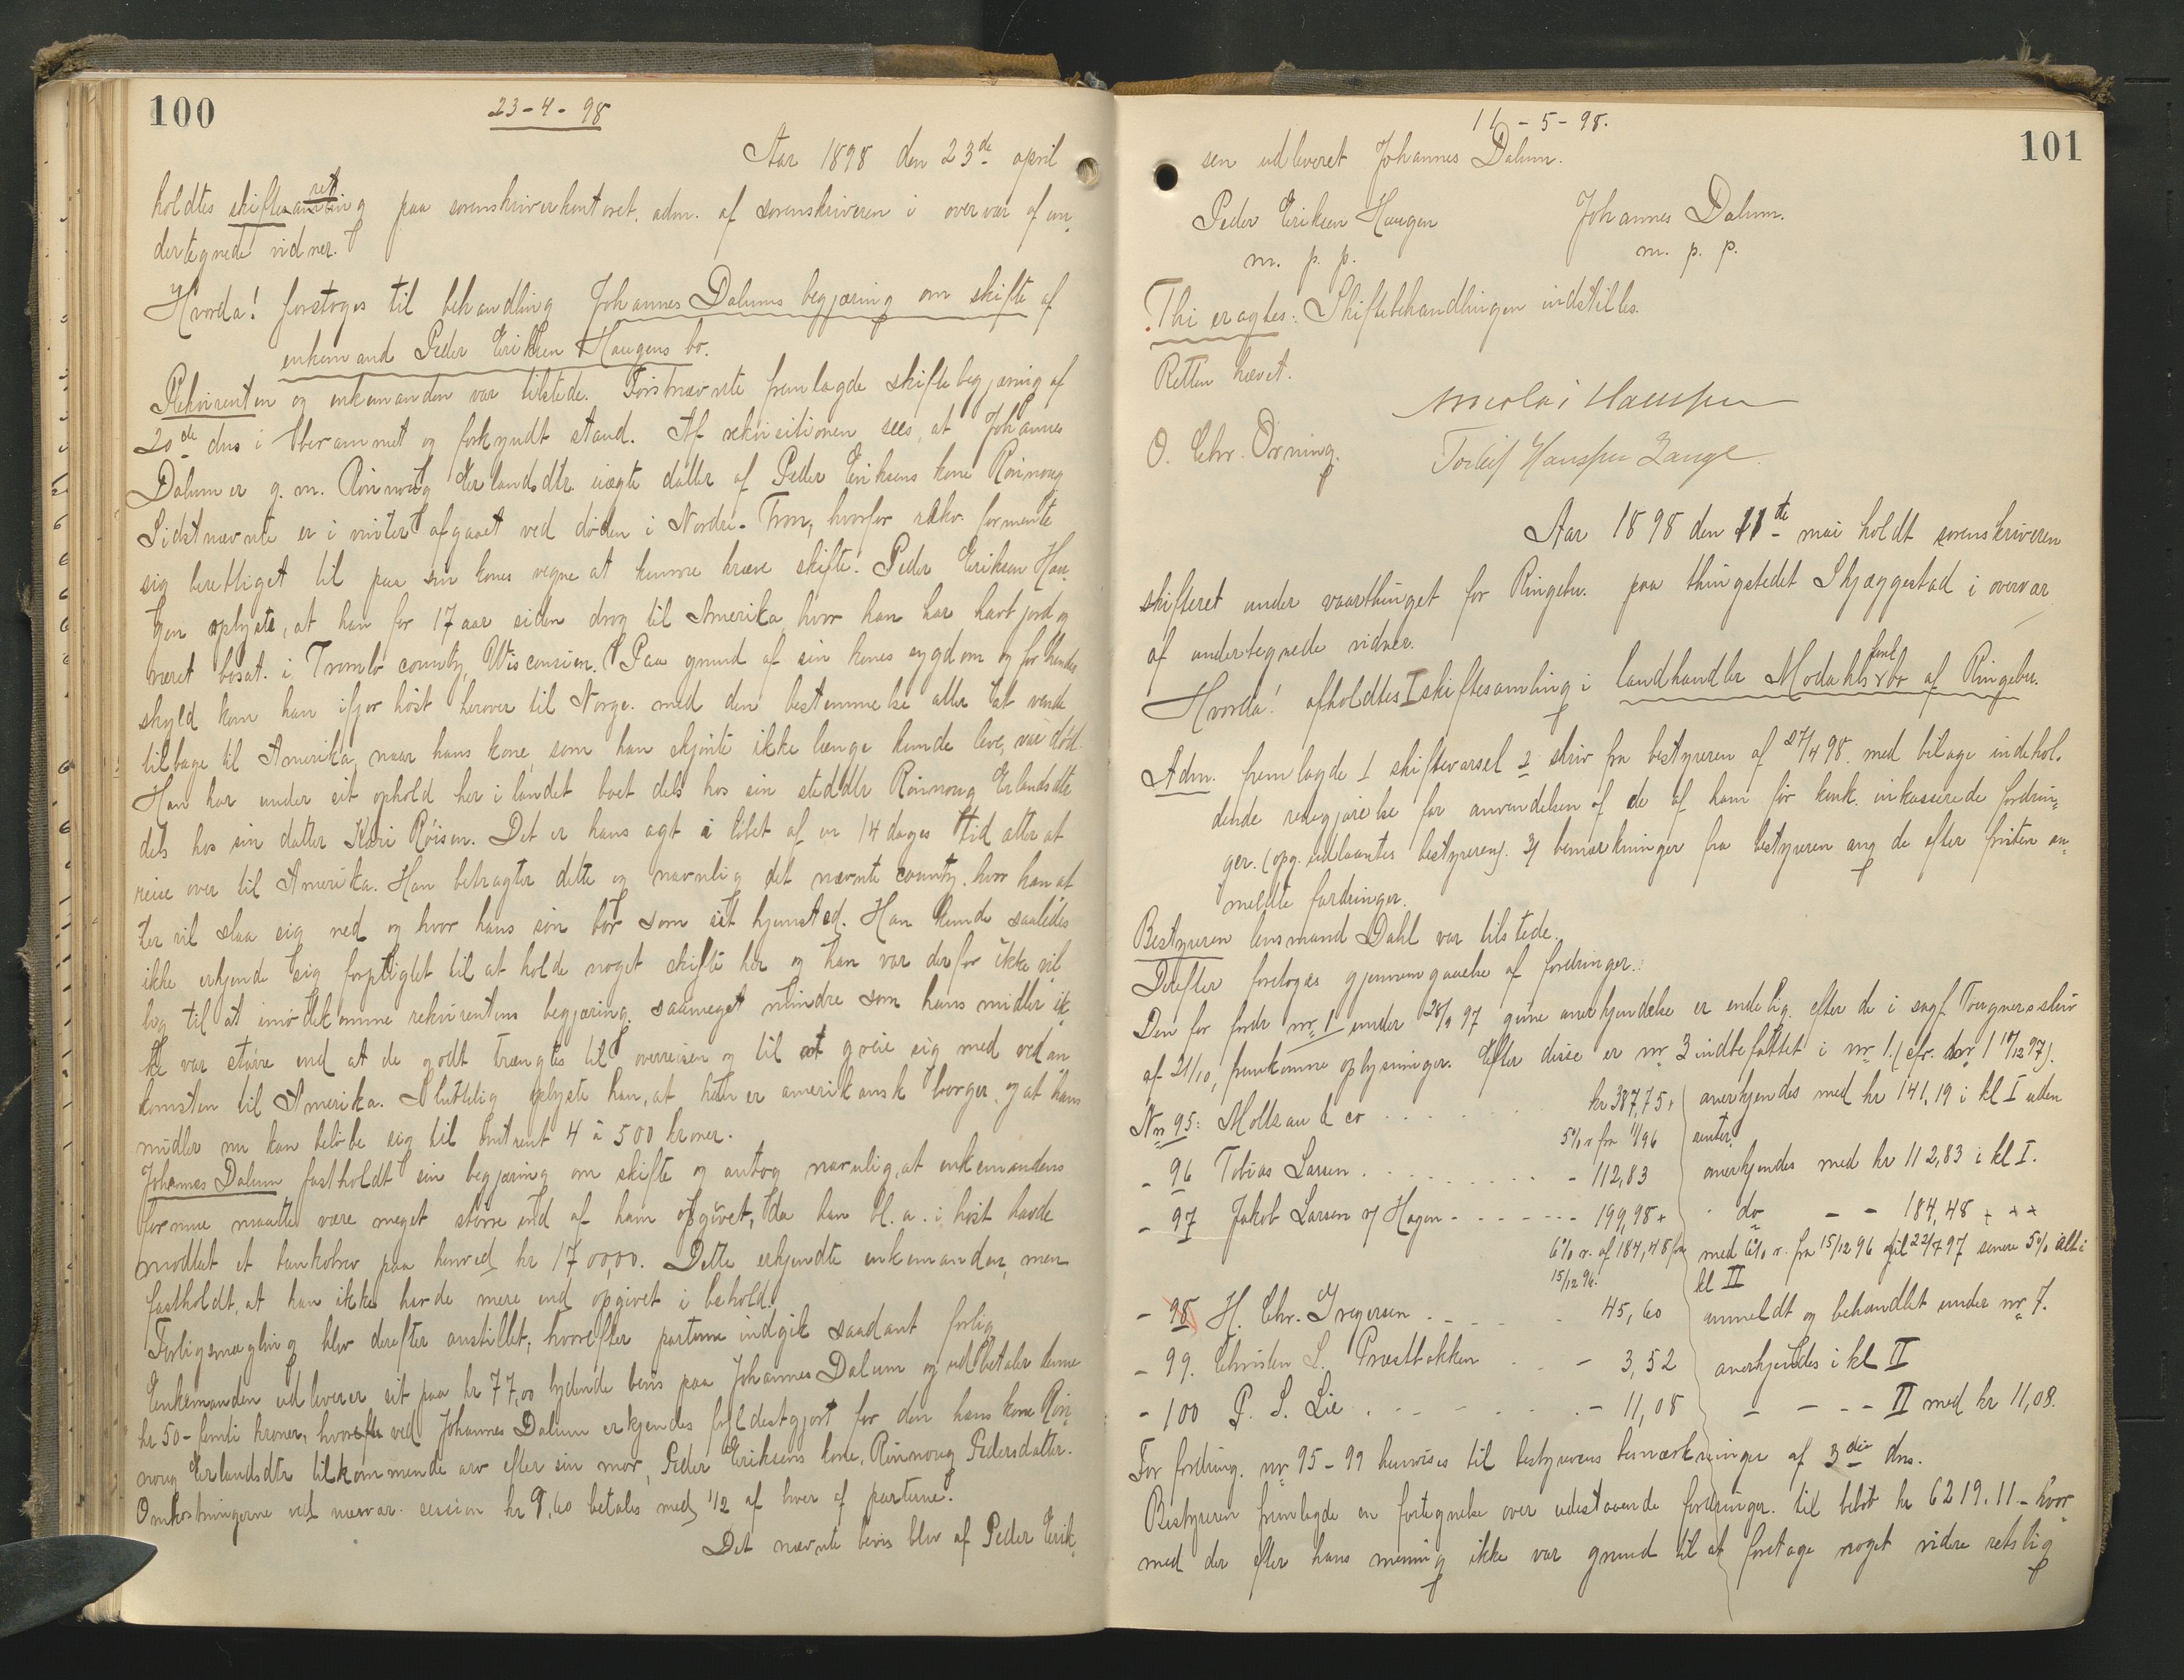 100
23-4-98
Aar 1898 den 23de april
holdtes skifteret paa sorenskriverkontoret, adm. af sorenskriveren i overvær af un-
dertegnede vidner.
Hvorda! foretoges til behandling Johannes Dalums begjæring om skifte af
enkemand Peder Eriksen Haugens bo.
Rekvirenten og enkemanden var tilstede. Førstnævnte fremlagde skiftebegjæring af
20de dns i berammet og forkyndt stand. Af rekvisitionen sees, at Johannes
Dalum er g. m. Rönnoug Erlandsdtr. uægte datter af Peder Eriksens kone Rönnoug
Sidstnævnte er i vinter afgaaet ved døden i Nordre-Fron, hvorfor rekv. formente
sig berettiget til paa sin kones vegne at kunne kræve skifte. Peder Eriksen Hau-
gen oplyste, at han for 17 aar siden drog til Amerika, hvor han har havt jord og
været bosat i county, Wisconsien. Paa grund af sin kones sygdom og for hendes
skyld kom han ifjor höst herover til Norge med den bestemmelse atter at vende
tilbage til Amerika, naar hans kone, som han skjönte ikke længe kunde leve, var död.
Han har under sit ophold her i landet boet dels hos sin steddtr Rönnoug Erlandsdtr
dels hos sin datter Kari Röisen. Det er hans agt i löbet af en 14 dages tid atter at
reise over til Amerika. Han betragter dette og navnlig det nævnte county, hvor han at-
ter vil slaa sig ned og hvor hans sön bor som sit hjemsted. Han kunde saaledes
ikke erkjende sig forpligtet til at holde noget skifte her og han var derfor ikke vil-
lig til at imödekomme rekvirentens begjæring, saameget mindre som hans midler ik-
ke var större end at de godt trængtes til overreisen og til at greie sig med ved an-
komsten til Amerika. Sluttelig oplyste han, at han er amerikansk borger, og at hans
midler nu kan belöbe sig til omtrent 4 à 500 kroner.
Johannes Dalum fastholdt sin begjæring om skifte og antog navnlig, at enkemandens
formue maatte være meget större end af ham opgivet, da han bl. a. i höst havde
modtat et bankobrev paa henved kr 1700,00. Dette erkjendte enkemanden, men
fastholdt, at han ikke havde mere end opgivet i behold.
Forligsmægling blev derefter anstillet, hvorefter parterne indgik saadant forlig
Enkemanden udleverer sit paa kr 77,00 lydende bevis paa Johannes Dalum og udbetaler denne
kr 50 - femti kroner, hvorefter ved Johannes Dalum erkjendes fyldestgjort for den hans kone Rön-
noug Erlandsdtr tilkommende arv efter sin mor, Peder Eriksens kone, Rönnoug Pedersdatter.
Omkostningerne ved nærvær. session kr 9,60 betales med 1/2 af hver af parterne.
Det nævnte bevis blev af Peder Erik-
101
11-5-98.
sen udleveret Johannes Dalum.
Peder Eriksen Haugen Johannes Dalum.
m. p. p. m. p. p.
Thi eragtes: Skiftebehandlingen indstilles.
Retten hævet.
Nicolai Hansen
O. Chr. Orning. Torleif Hansen Lange
Aar 1898 den 11te mai holdt sorenskriveren
skifteret under vaarthinget for Ringebu paa thingstedet Skjæggestad i overvær
af undertegnede vidner.
Hvorda! afholdtes skiftesamling i landhandler Modahls bo af Ringebu.
Adm. fremlagde 1 skiftevarsel 2 skriv fra bestyreren af 27/4 98. med bilage indehol-
dende redegjörelse for anvendelsen af de af ham för konk. inkasserede fordrin-
ger. (opg. udlaantes bestyreren). 3) bemærkninger fra bestyreren ang de efter fristen an-
meldte fordringer.
Bestyreren lensmand Dahl var tilstede.
Derefter foretoges gjennemgaaelse af fordringer.:
Den for fordr nr. 1 under 28/9 97 givne anerkjendelse er endelig efter de i sagf. Tougners skriv
af 21/10, fremkomne oplysninger. Efter disse er nr 3 indbefattet i nr 1. (cfr. nr 1 10/12 97).
Nr 95: Moltzau & co kr 387,75 + anerkjendes med kr 141,19 i kl I uden
5% r fra 1/1 96 renter.
- 96 Tobias Larsen - 112,83 anerkjendes med kr 112,83 i kl I.
- 97 Jakob Larsen v/ Hagen - 199,98 + do - - 184,48 + + +
6% r. af 184,48 fra med 6% r. fra 15/12 96 til 22/7 97 senere 5% alt i
15/12 96. kl II
- 98 H. Chr. Gregersen 45,60 anmeldt og behandlet under nr 7.
- 99. Christen L. Præstbakken - 3,52 anerkjendes i kl II
- 100 P. S. Lie - 11,08 - - - II med kr 11,08.
For fordring. nr 95-99 henvises til bestyrerens bemærkninger af 3die dns.
Bestyreren fremlagde en fortegnelse over udestaaende fordringer til belöb kr 6219.11 - hvor-
med der efter hans mening ikke var grund til at foretage noget videre retslig